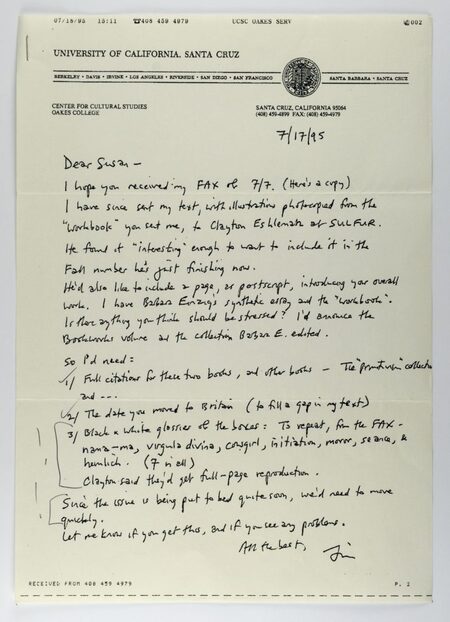 07/18/95 15:11 ☎408 459 4979 UCSC OAKES SERV 002
UNIVERSITY OF CALIFORNIA, SANTA CRUZ
BERKELEY • DAVIS • IRVINE • LOS ANGELES • RIVERSIDE • SAN DIEGO • SAN FRANCISCO SANTA BARBARA • SANTA CRUZ
CENTER FOR CULTURAL STUDIES
OAKES COLLEGE
SANTA CRUZ, CALIFORNIA 95064
(408) 459-4899 FAX: (408) 459-4979
7/17/95
Dear Susan —
I hope you received my FAX of 7/7. (Here's a copy)
I have since sent my text, with illustrations photocopied from the
"workbook" you sent me, to Clayton Eshleman at SULFUR.
He found it "interesting" enough to want to include it in the
Fall number he's just finishing now.
He'd also like to include a page, as postscript, introducing your overall
work. I have Barbara Einzig's synthetic essay and the "workbook".
Is there anything you think should be stressed? I'd announce the
Bookworks volume and the collection Barbara E. edited.
So I'd need:
1/ Full citations for these two books, and other books — The "primitivism" collection
and ---.
2/ The date you moved to Britain (to fill a gap in my text)
3/ Black & white glossies of the boxes: To repeat, from the FAX-
nama-ma, virgula divina, cowgirl, initiation, mirror, seance, &
heimlich. (7 in all)
Clayton said they'd get full-page reproduction.
Since the issue is being put to bed quite soon, we'd need to move
quickly.
Let me know if you get this, and if you see any problems.
All the best,
Jim
RECEIVED FROM 408 459 4979 P. 2